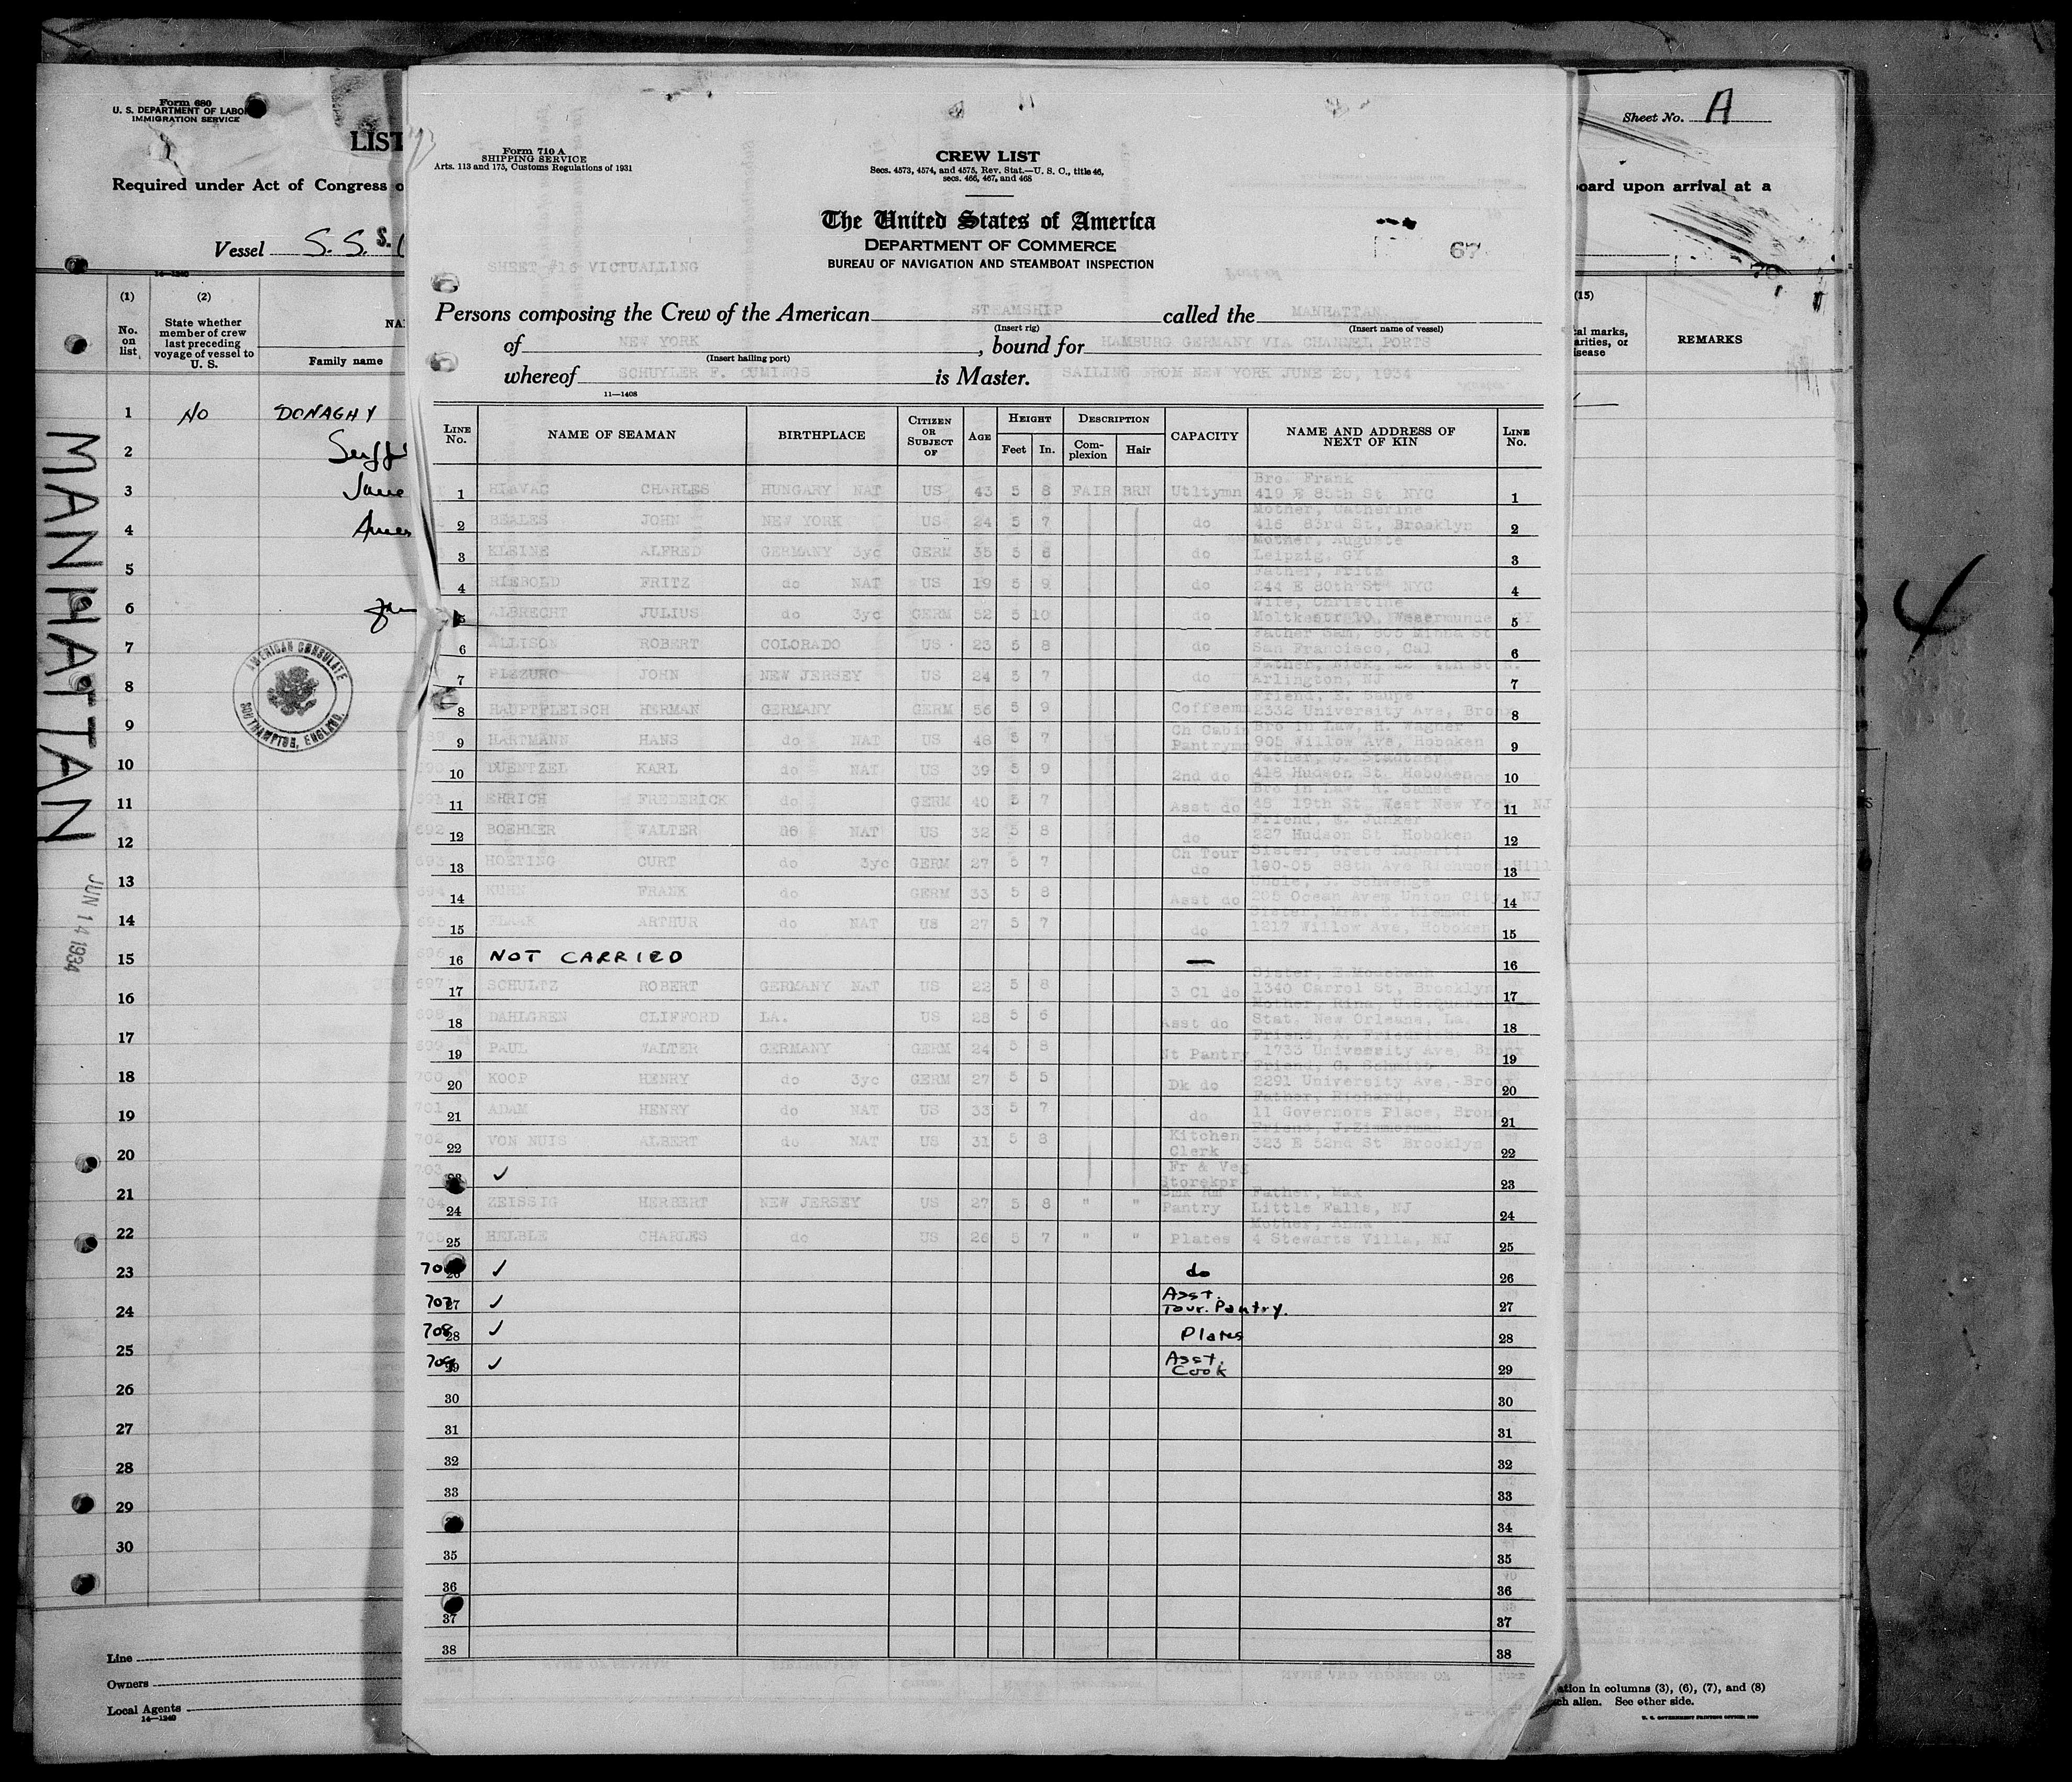 Form 680
U. S. DEPARTMENT OF LABOR
IMMIGRATION SERVICE
LIST
Required under Act of Congress o
Vessel S. S.
14-1240
(1) (2)
No. on list
State whether member of crew last preceding voyage of vessel to U. S.
NA
Family name
1 NO DONAGHY
2
3 Jane
4
5
6
7
8
9
10
11
12
13
14
15
16
17
18
19
20
21
22
23
24
25
26
27
28
29
30
AMERICAN CONSULATE
SOUTHAMPTON, ENGLAND.
MANHATTAN
JUN 14 1934
Line
Owners
Local Agents
14-1240
Form 710 A
SHIPPING SERVICE
Arts. 113 and 175, Customs Regulations of 1931
CREW LIST
Secs. 4573, 4574, and 4575, Rev. Stat.—U. S. C., title 46,
secs. 466, 467, and 468
The United States of America
DEPARTMENT OF COMMERCE
BUREAU OF NAVIGATION AND STEAMBOAT INSPECTION
67
SHEET #16 VICTUALLING
Persons composing the Crew of the American STEAMSHIP called the MANHATTAN
(Insert rig) (Insert name of vessel)
of NEW YORK, bound for HAMBURG GERMANY VIA CHANNEL PORTS
(Insert hailing port)
whereof SCHUYLER F. CUMINGS is Master. SAILING FROM NEW YORK JUNE 20, 1934
11—1408
LINE No. NAME OF SEAMAN BIRTHPLACE CITIZEN OR SUBJECT OF AGE HEIGHT Feet In. DESCRIPTION Complexion Hair CAPACITY NAME AND ADDRESS OF NEXT OF KIN LINE No.
1 HLAVAC CHARLES HUNGARY NAT US 43 5 8 FAIR BRN Utltymn Bro. Frank 419 E 85th St NYC 1
2 BEALES JOHN NEW YORK US 24 5 7 do Mother, Catherine 416 83rd St, Brooklyn 2
3 KLEINE ALFRED GERMANY 3yc GERM 35 5 8 do Mother, Auguste Leipzig, GY 3
4 RIEBOLD FRITZ do NAT US 19 5 9 do Father, Fritz 244 E 80th St NYC 4
5 ALBRECHT JULIUS do 3yc GERM 52 5 10 do Wife, Christine Moltkestr 10, Wesermunde GY 5
6 ALLISON ROBERT COLORADO US 23 5 8 do Father Sam, 805 Minna St San Francisco, Cal 6
7 PIZZURO JOHN NEW JERSEY US 24 5 7 do Father, Nick, 22 4th St Arlington, NJ 7
8 HAUPTFLEISCH HERMAN GERMANY GERM 56 5 9 Coffeemn Friend, E. Saupe 2332 University Ave, Bronx 8
9 HARTMANN HANS do NAT US 48 5 7 Ch Cabin Pantrymn Bro in Law, H. Wagner 905 Willow Ave, Hoboken 9
10 DUENTZEL KARL do NAT US 39 5 9 2nd do Father, G. Stadtner 418 Hudson St Hoboken 10
11 EHRICH FREDERICK do GERM 40 5 7 Asst do Bro in Law 48 19th St West New York, NJ 11
692 12 BOEHMER WALTER do NAT US 32 5 8 do Friend, E. Junker 227 Hudson St Hoboken 12
693 13 HOETING CURT do 3yc GERM 27 5 7 Ch Tour do Sister, Grete 100-05 88th Ave Richmond Hill 13
694 14 KUHN FRANK do GERM 33 5 8 Asst do Uncle, 205 Ocean Ave, Union City, NJ 14
695 15 ARTHUR do NAT US 27 5 7 do Sister, Mrs. 1217 Willow Ave, Hoboken 15
696 16 NOT CARRIED — 16
697 17 SCHULTZ ROBERT GERMANY NAT US 22 5 8 3 Cl do Sister, E Modebach 1340 Carrol St, Brooklyn 17
698 18 DAHLGREN CLIFFORD LA. US 28 5 6 Asst do Mother, Rina, U.S. Stat. New Orleans, La. 18
699 19 PAUL WALTER GERMANY GERM 24 5 8 Nt Pantry Friend, A. Friedrichs 1733 University Ave, Bronx 19
700 20 KOOP HENRY do 3yc GERM 27 5 5 Dk do Friend, G. Schmitt 2291 University Ave, Bronx 20
701 21 ADAM HENRY do NAT US 33 5 7 do Father, Richard, 11 Governors Place, Bronx 21
702 22 VON NUIS ALBERT do NAT US 31 5 8 Kitchen Clerk Friend, J.Zimmerman 323 E 52nd St Brooklyn 22
703 23 ✓ Fr & Veg Storekpr 23
704 24 ZEISSIG HERBERT NEW JERSEY US 27 5 8 " " Smk Rm Pantry Father, Max Little Falls, NJ 24
705 25 HELBLE CHARLES do US 26 5 7 " " Plates Mother, Anna 4 Stewarts Villa, NJ 25
706 26 ✓ do 26
707 27 ✓ Asst. Tour. Pantry. 27
708 28 ✓ Plates 28
709 29 ✓ Asst. Cook 29
30 30
31 31
32 32
33 33
34
35 35
36 36
37 37
38 38
Sheet No. A
oard upon arrival at a
(15)
al marks,
arities, or
isease
REMARKS
4
ation in columns (3), (6), (7), and (8)
ch alien. See other side.
U. S. GOVERNMENT PRINTING OFFICE